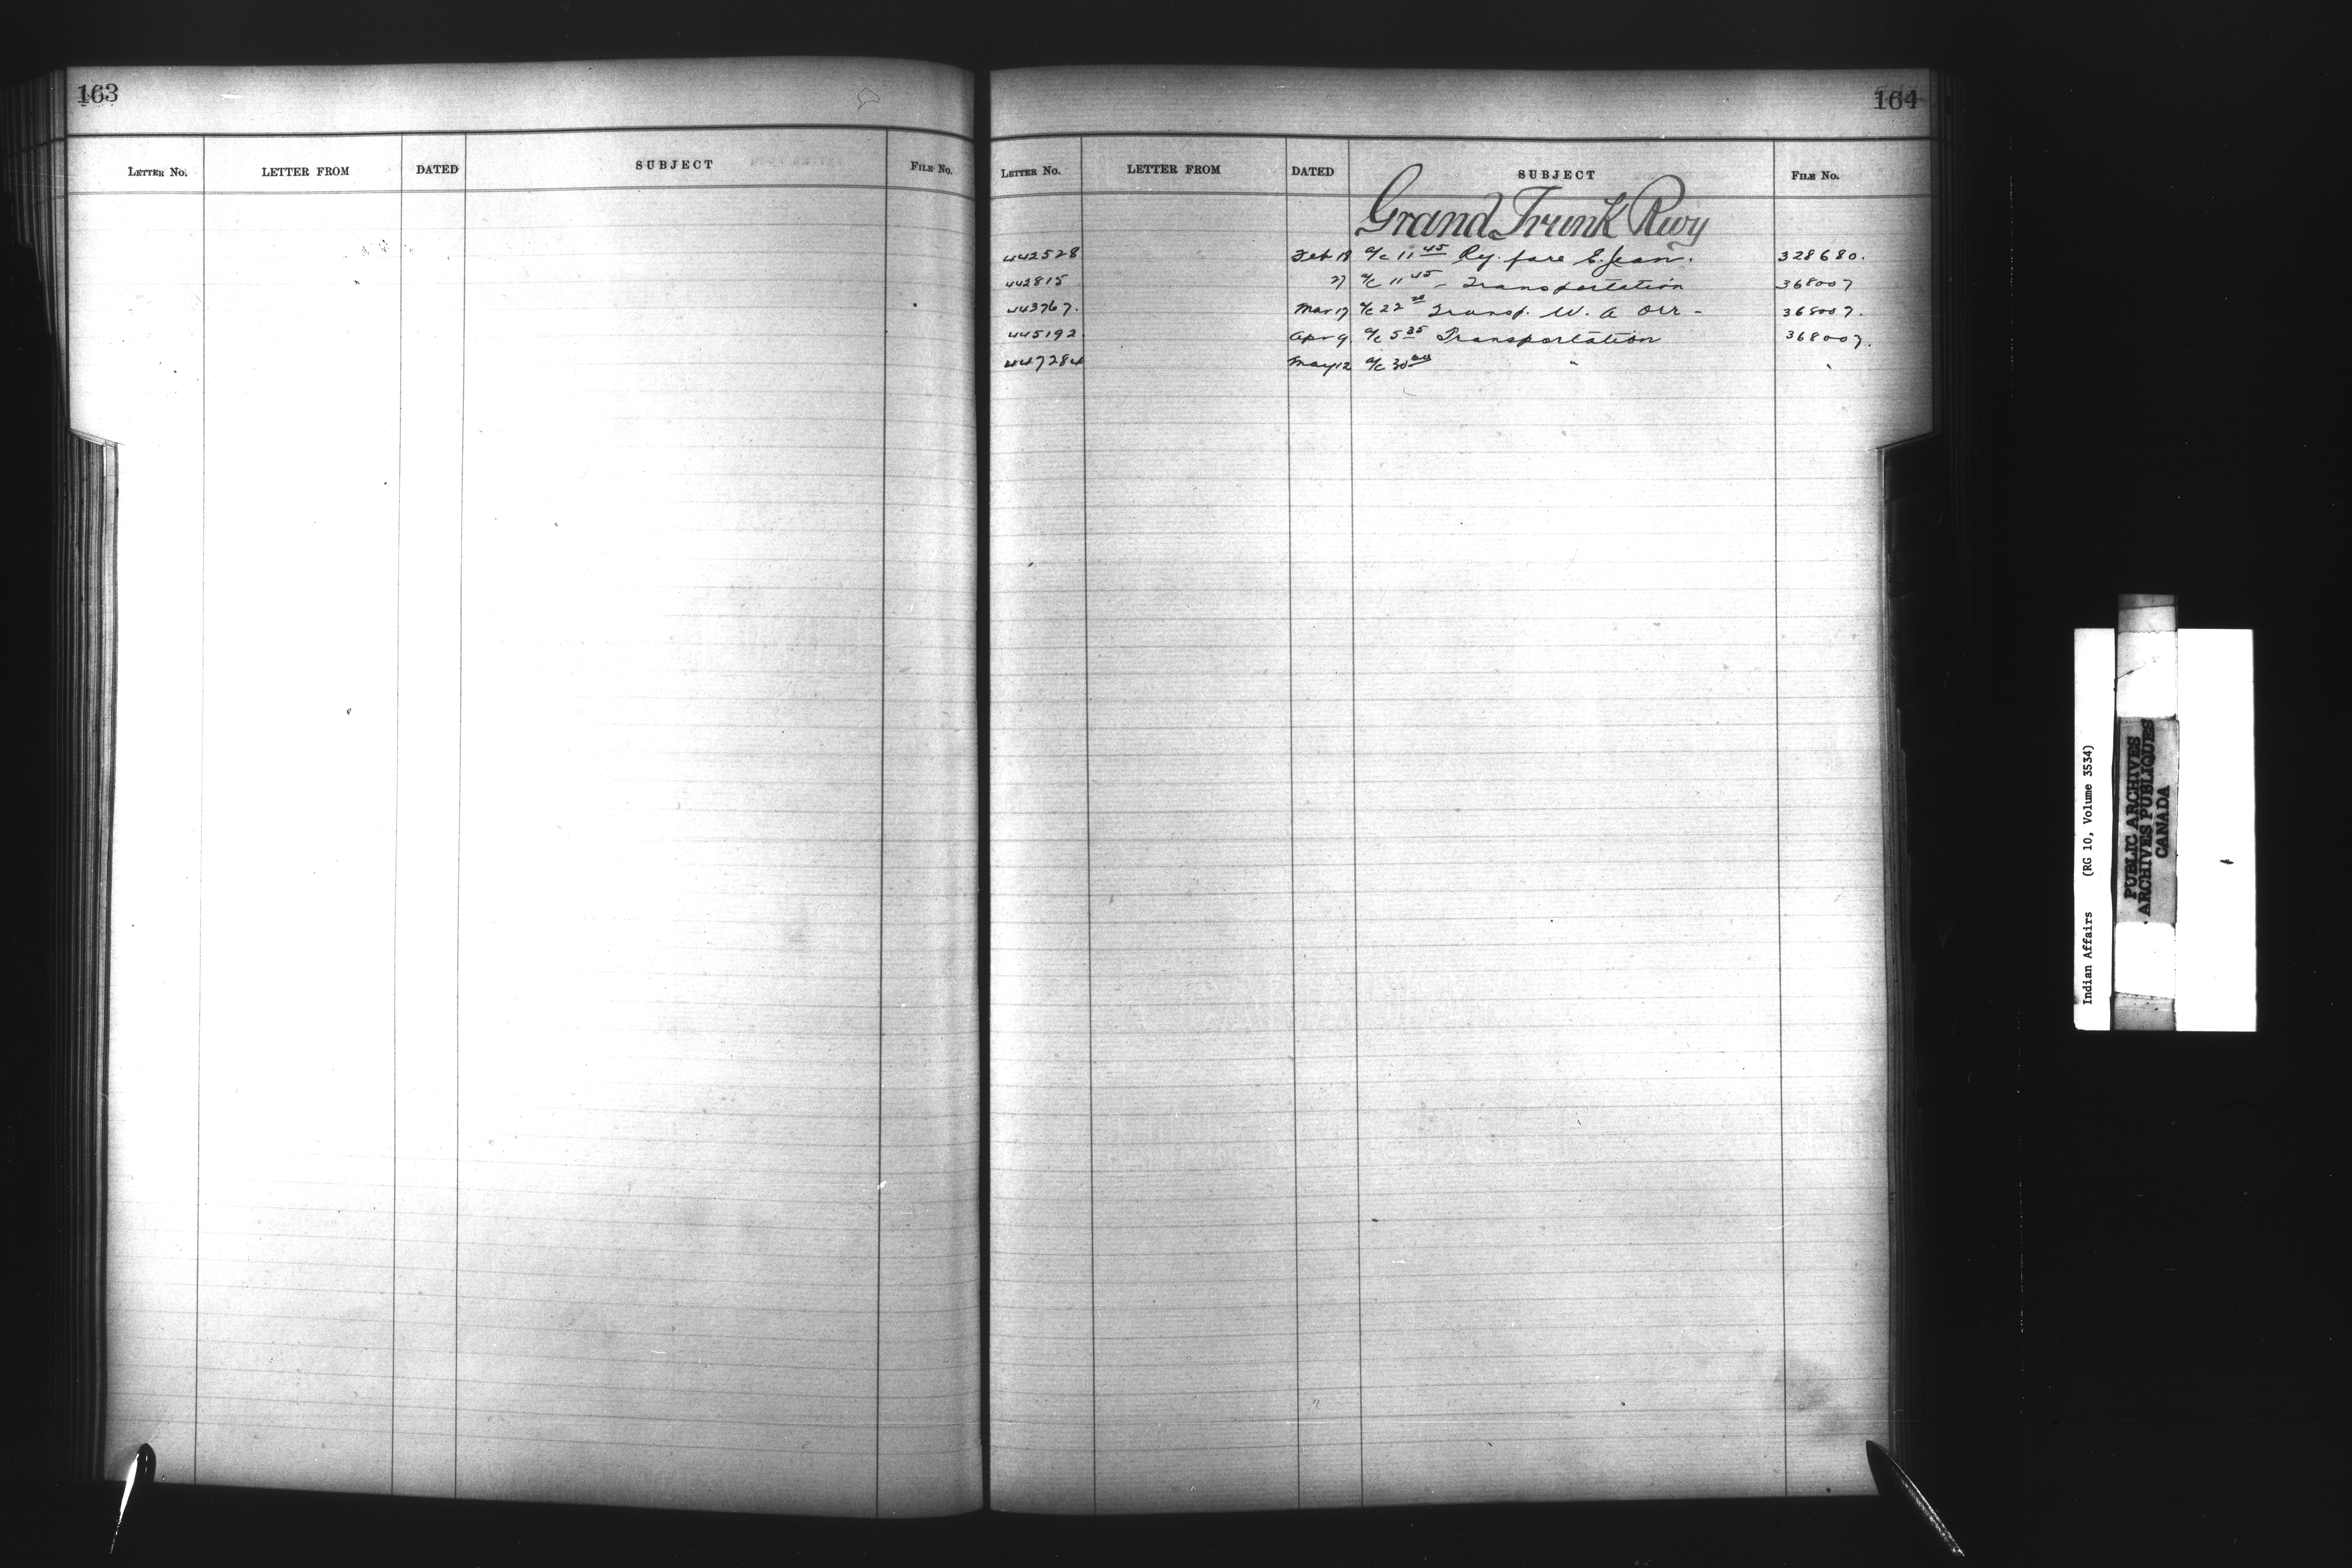 163
LETTER No. LETTER FROM DATED SUBJECT FILE No.
164
LETTER No. LETTER FROM DATED SUBJECT FILE No.
Grand Trunk Rwy
442528 Feb 18 a/c 11 45 Ry. fare E. Jean. 328680.
442815 27 a/c 11 45 - Transportation 368007
443767. Mar 17 a/c 22 Transp. W. A Orr - 368007.
445192 Apr 9 a/c 5 35 Transportation 368007.
447284 May 12 a/c 30 00 " "
Indian Affairs (RG 10, Volume 3534)
PUBLIC ARCHIVES
ARCHIVES PUBLIQUES
CANADA